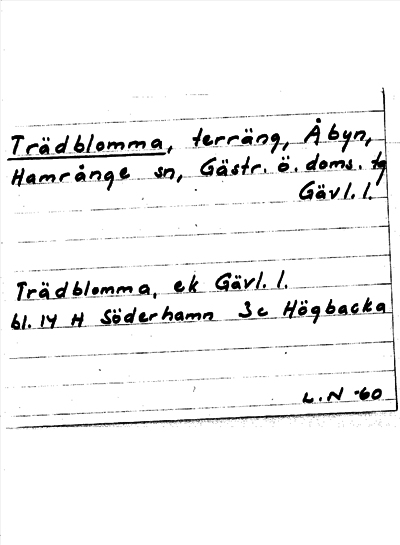 Trädblomma, terräng, Åbyn,
Hamrånge sn, Gästr. ö. doms. tg
Gävl. l.
Trädblomma, ek Gävl. l.
bl. 14 H Söderhamn 3c Högbacka
L.N -60